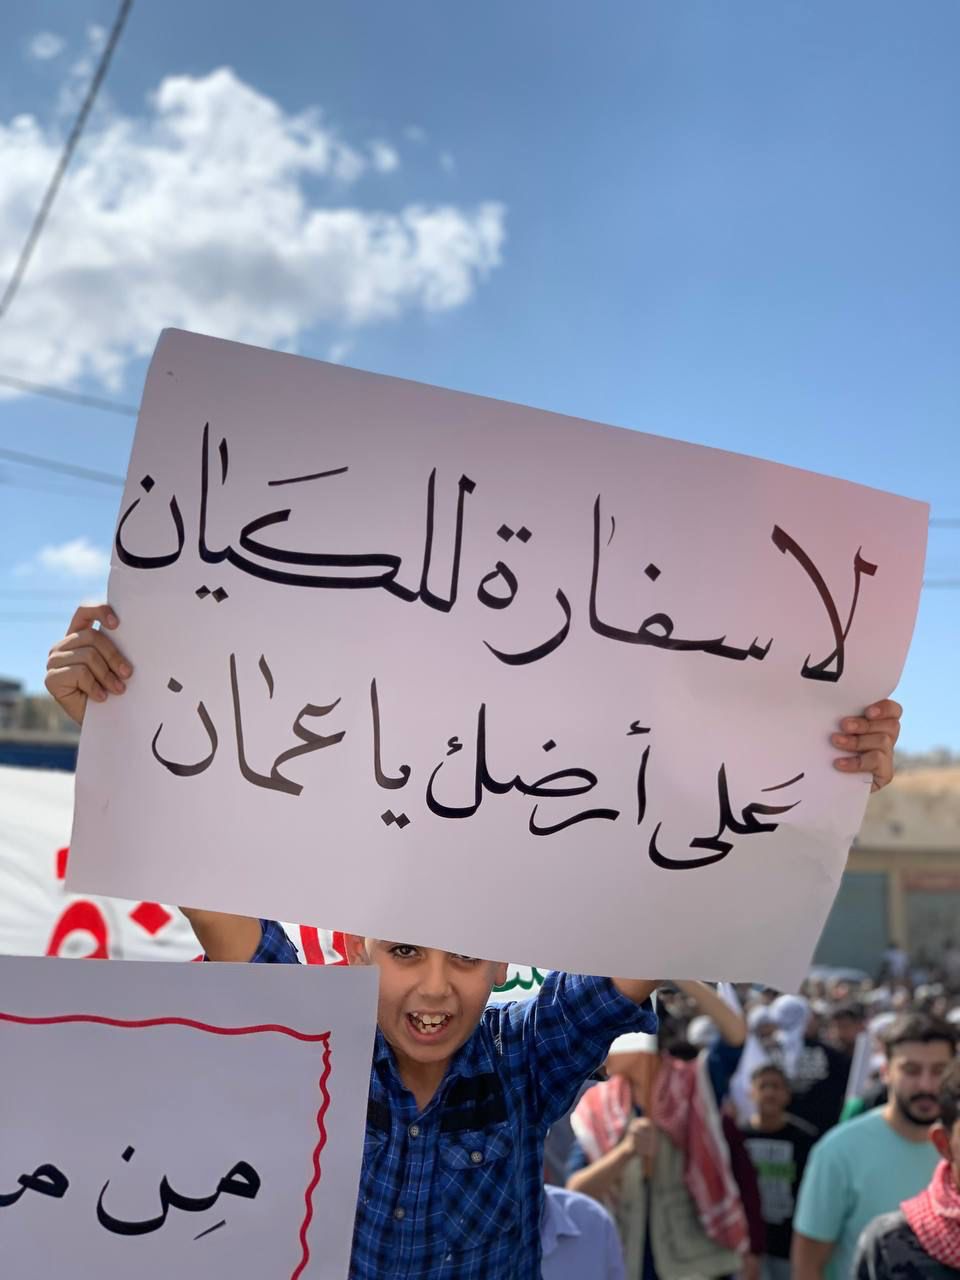 لا سفارة للكيان
عَلى أرضك يا عمان
مِن